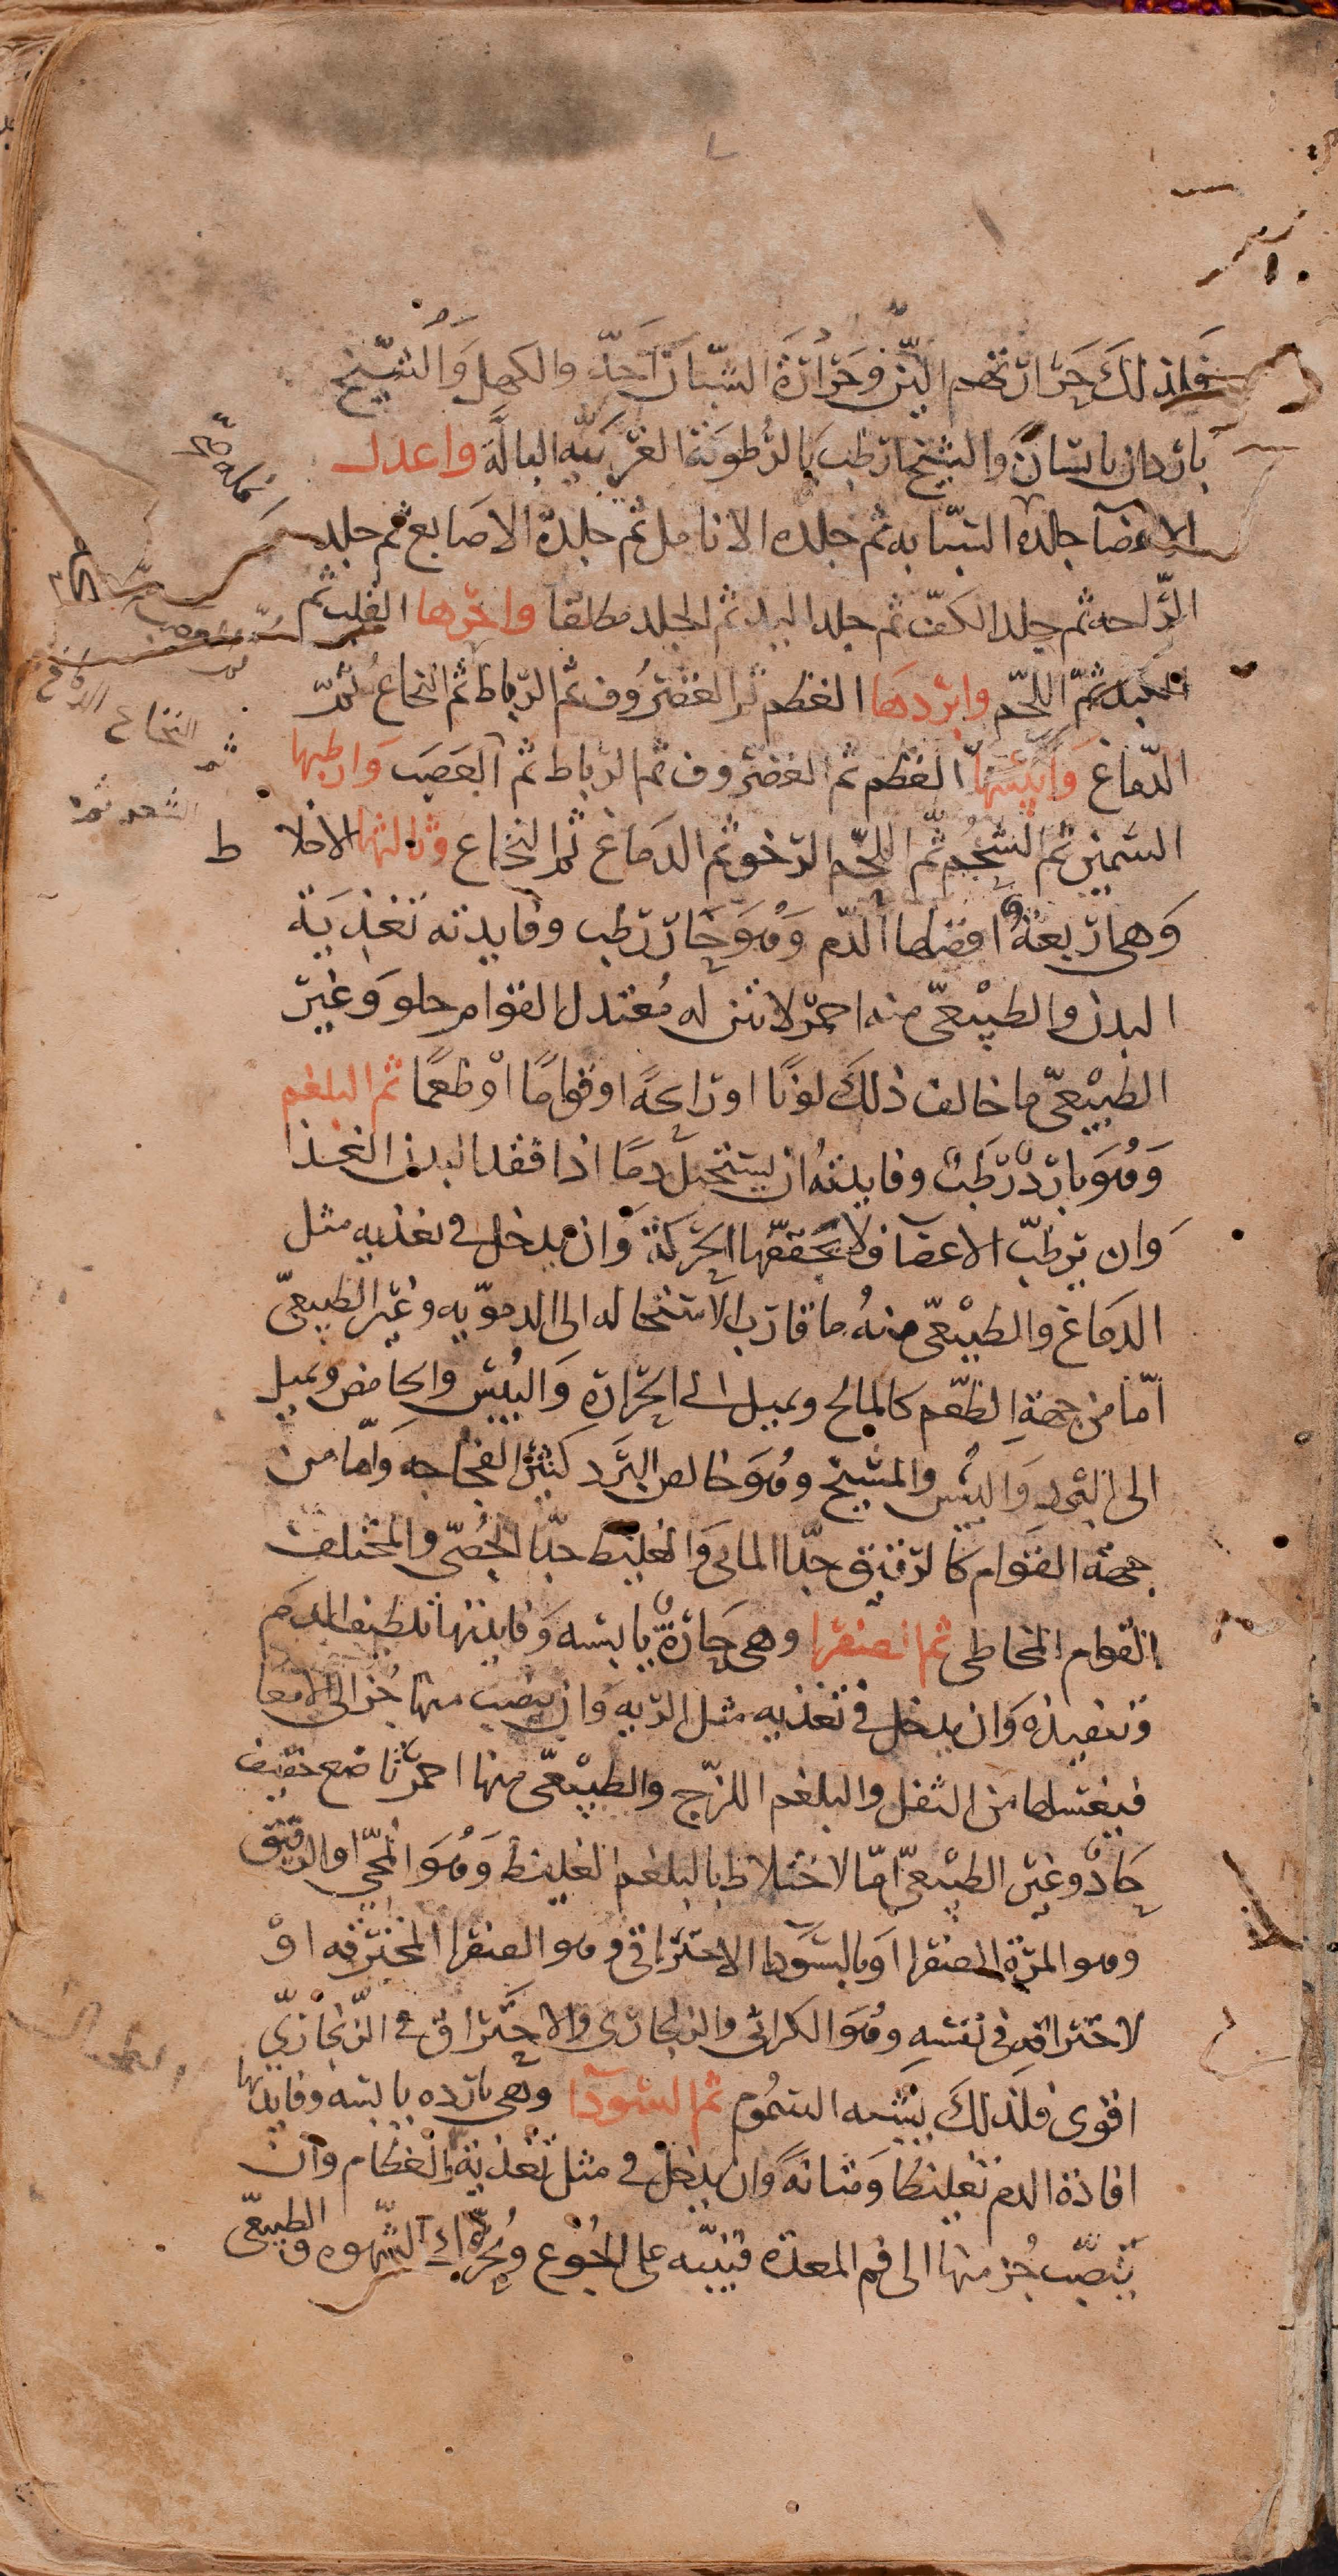 فلذلك حرارتهم الين وحرارة الشبان احد والكهل والشيخ
باردان يابسان والشيخ ارطب بالرطوبة الغريبة البالة واعدل
الاعضا جلده السبابه ثم جلده الانامل ثم جلدة الاصابع ثم جلد
الراحه ثم جلد الكف ثم جلد اليد ثم الجلد مطلقا واحرها القلب ثم
الكبد ثم اللحم وابردها العظم ثم الغضروف ثم الرباط ثم النخاع ثم
الدماغ وايبسها العظم ثم الغضروف ثم الرباط ثم العصب وارطبها
السمين ثم الشحم ثم اللحم الرخو ثم الدماغ ثم النخاع وثالثها الاخلا ط
وهى اربعة افضلها الدم وهو حار رطب وفايدته تغذية
البدن والطبيعى منه احمر لا نتن له معتدل القوام حلو وغير
الطبيعى ما خالف ذلك لونا او رايحة او قواما او طعما ثم البلغم
وهو بارد رطب وفايدته ان يستحيل دما اذا فقد البدن الغذا
وان يرطب الاعضا فلا يجففها الحركة وان يدخل فى تغذيه مثل
الدماغ والطبيعى منه ما قارب الاستحاله الى الدمويه وغير الطبيعى
اما من جهة الطعم كالمالح ويميل الى الحرارة واليبس والحامض ويميل
الى البرد واليبس والمسيخ وهو خالص البرد كثير الفجاجه واما من
جهة القوام كالرقيق جدا المائى والغليظ جدا الجصى والمختلف
القوام المخاطى ثم الصفرا وهى حارة يابسه وفايدتها تلطيف الدم
وتنفيذه وان يدخل فى تغذيه مثل الريه وان ينصب منها جز الى الامعا
فيغسلها من الثفل والبلغم اللزج والطبيعى منها احمر ناصع خفيف
حاد وغير الطبيعى اما لاختلاط بالبلغم الغليظ وهو المحى او الرقيق
وهو المرة الصفرا او بالسودا الاحتراقى وهو الصفرا المحترقه او
لاحتراقه فى نفسه وهو الكراثى والزنجارى والاحتراق فى الزنجارى
اقوى فلذلك يشبه السموم ثم السودا وهى بارده يابسه وفايدتها
افادة الدم تغليظا ومتانة وان يدخل فى مثل تغذية العظام وان
ينصب جز منها الى فم المعدة فتنبه على الجوع ويحرك الشهوه والطبيعى
ثم النخاع